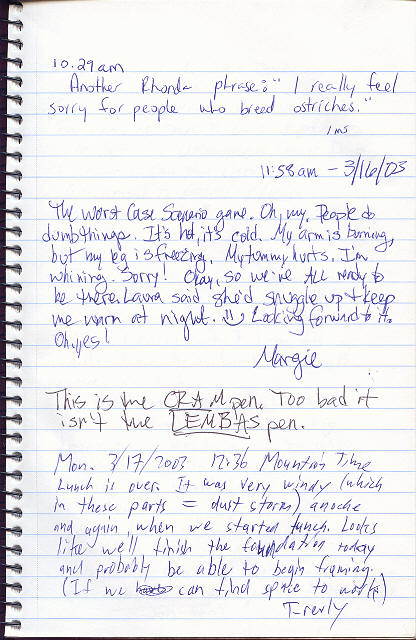 10:29am
Another Rhonda phrase: "I really feel
sorry for people who breed ostriches."
1ms
11:58am - 3/16/03
The Worst Case Scenario game. Oh, my. People do
dumb things. It's hot, it's cold. My arm is burning,
but my leg is freezing. My tummy hurts. I'm
whining. Sorry! Okay, so we're ALL ready to
be there. Laura said she'd snuggle up & keep
me warm at night. Looking forward to it.
Oh, yes!
Margie
This is the CRAM pen. Too bad it
isn't the LEMBAS pen.
Mon. 3/17/2003 12:36 Mountain Time
Lunch is over. It was very windy (which
in these parts = dust storm) anoche
and again when we started lunch. Looks
like we'll finish the foundation today
and probably be able to begin framing.
(If we can find space to work)